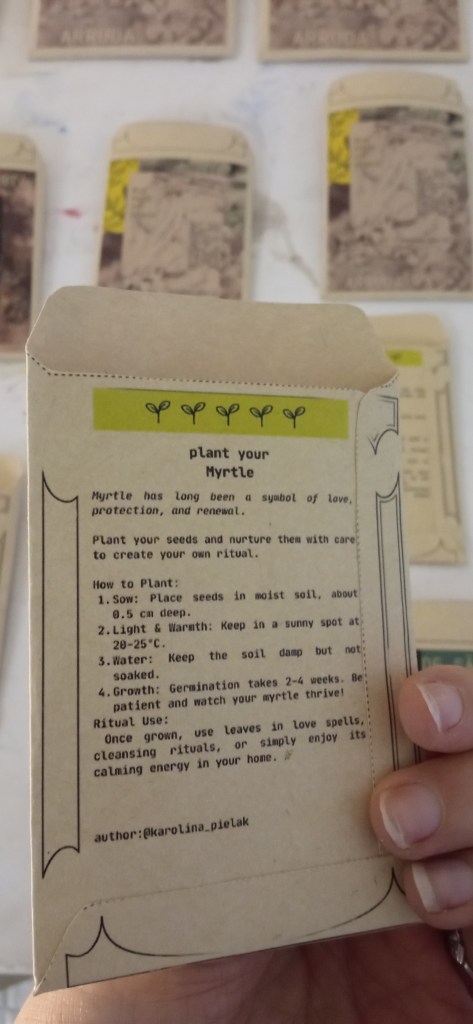 ARRUDA
ARRUDA
plant your
Myrtle
Myrtle has long been a symbol of love,
protection, and renewal.
Plant your seeds and nurture them with care
to create your own ritual.
How to Plant:
1. Sow: Place seeds in moist soil, about
0.5 cm deep.
2. Light & Warmth: Keep in a sunny spot at
20-25°C.
3. Water: Keep the soil damp but not
soaked.
4. Growth: Germination takes 2-4 weeks. Be
patient and watch your myrtle thrive!
Ritual Use:
Once grown, use leaves in love spells,
cleansing rituals, or simply enjoy its
calming energy in your home.
author:@karolina_pielak